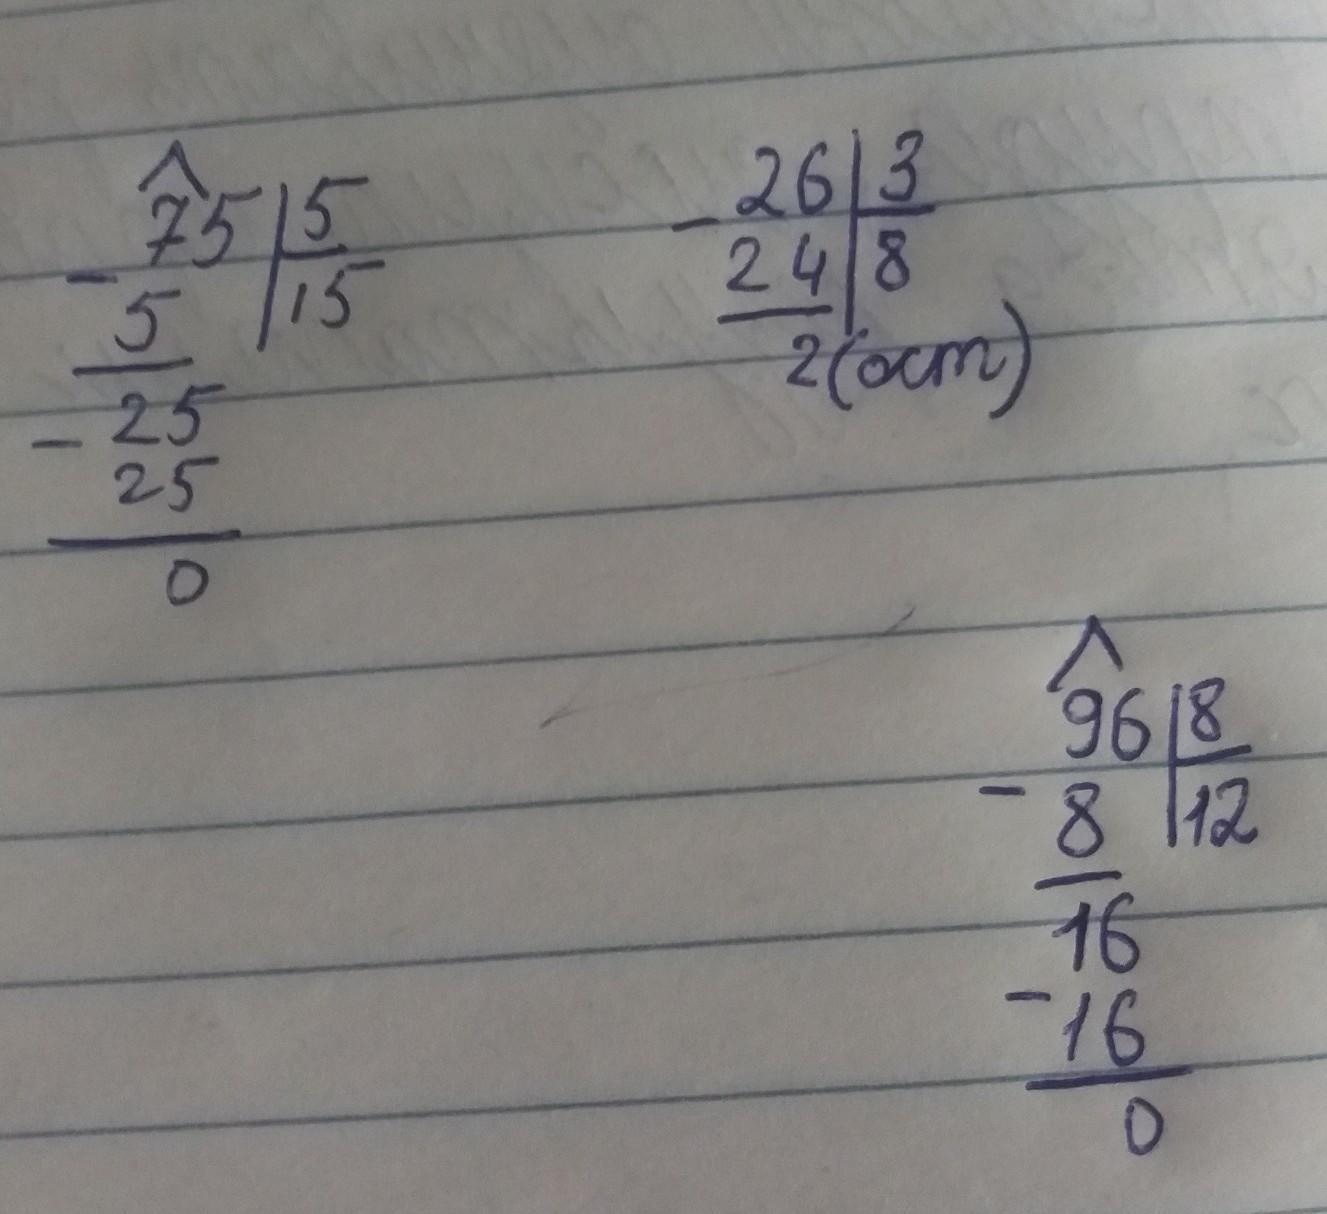 75 5
- 5 15
- 25
25
0
26 3
- 24 8
2 (ост)
96 8
- 8 12
16
- 16
0